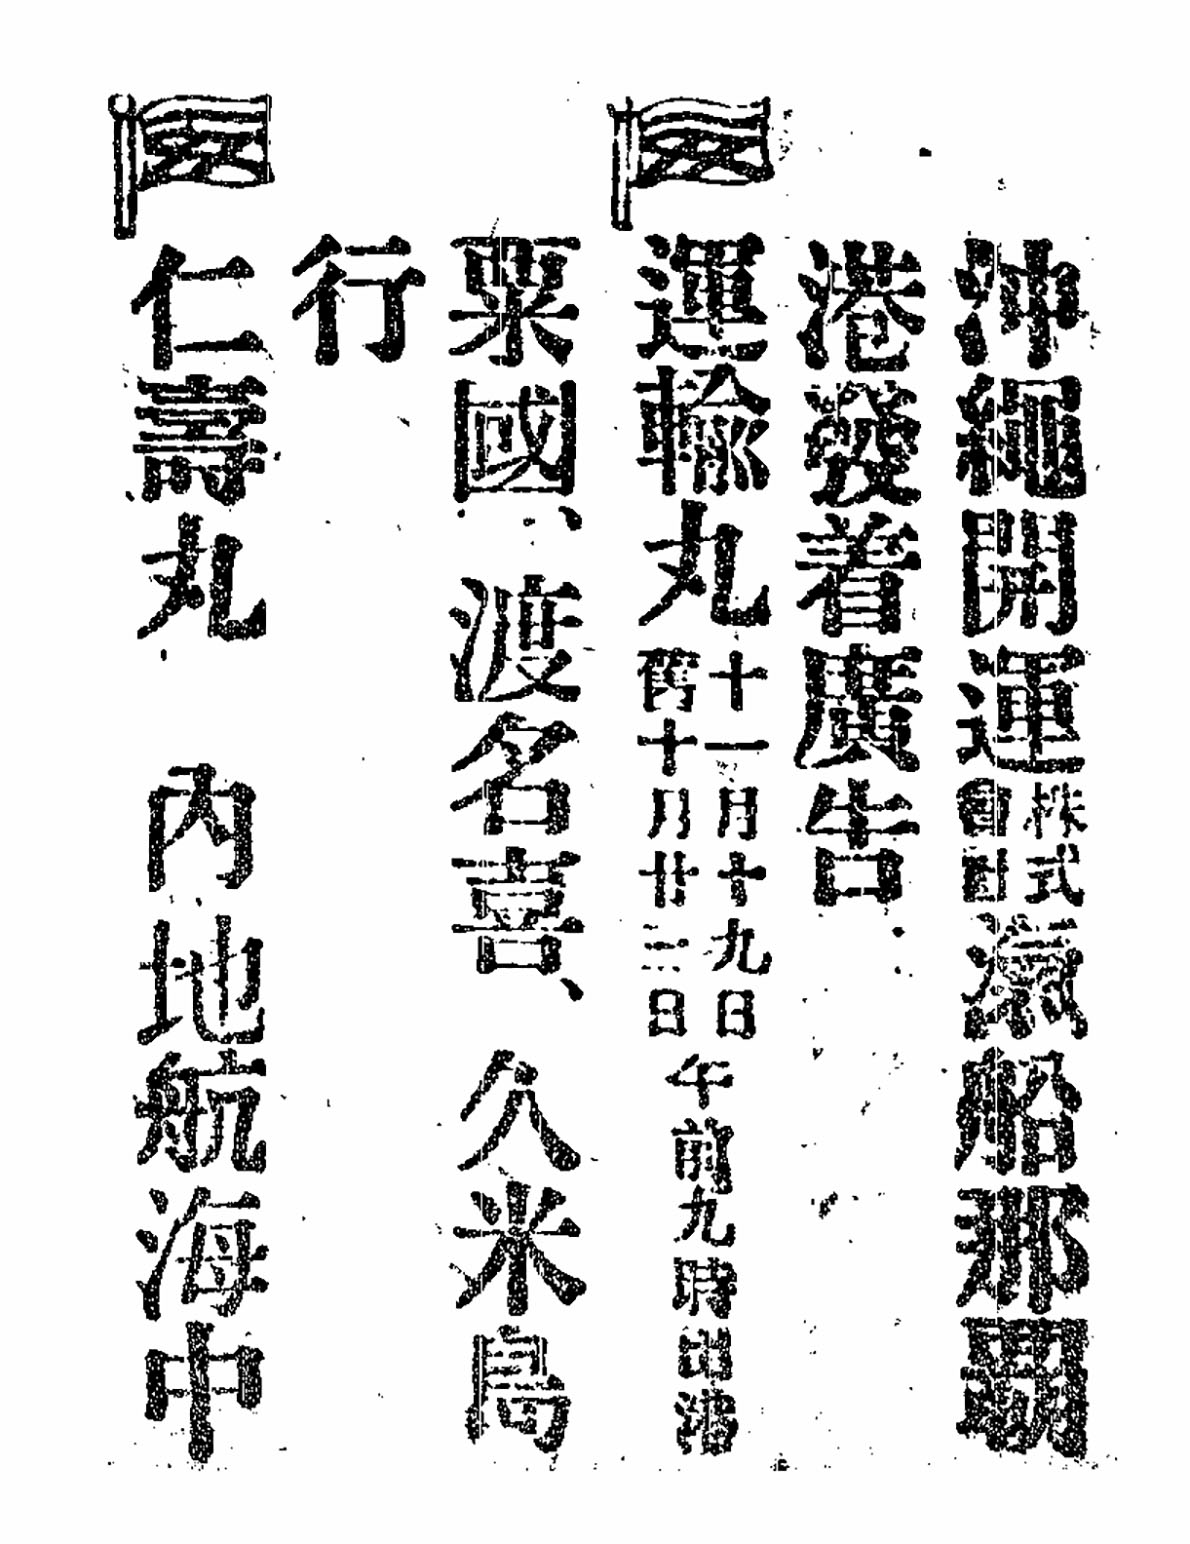 沖繩開運株式會社滊船那覇
港發着廣告
運輸丸十一月十九日舊十月廿三日午前九時出港
粟國、渡名喜、久米島
行
仁壽丸 內地航海中